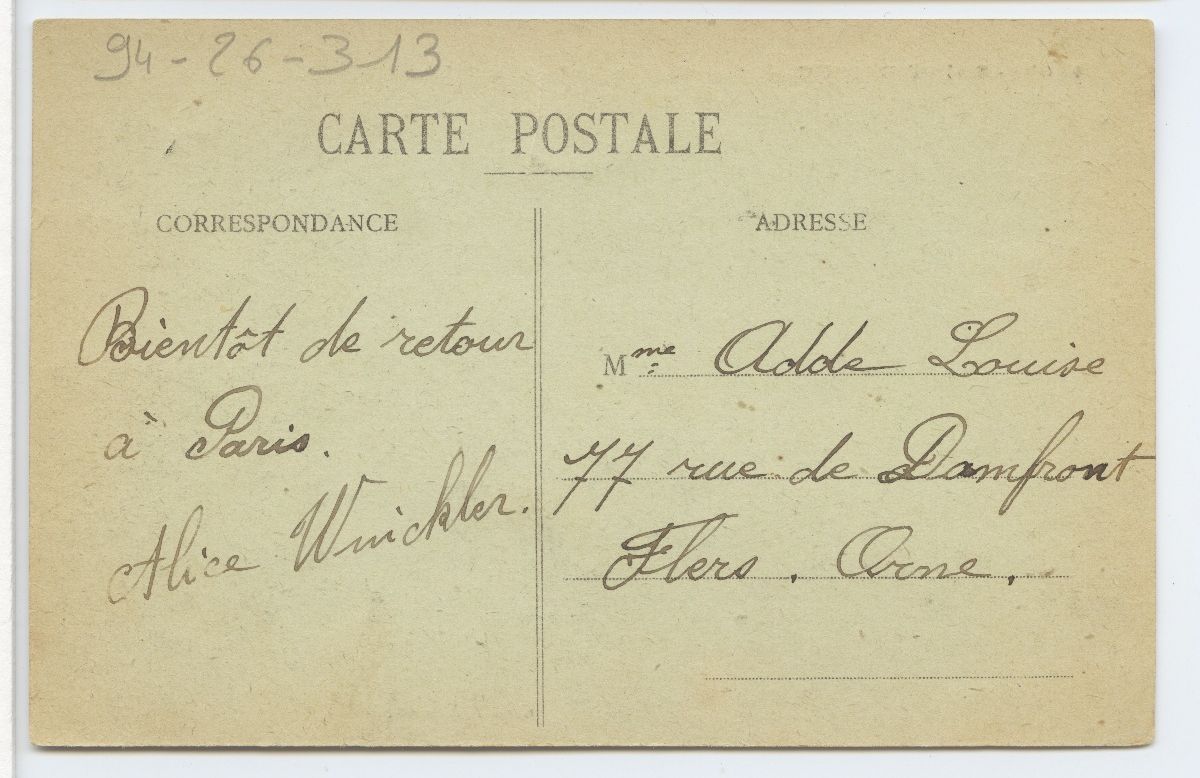 94-26-313
CARTE POSTALE
CORRESPONDANCE
ADRESSE
Bientôt de retour
à Paris.
Alice Winckler.
Mme Adde Louise
77 rue de Domfront
Flers. Orne.